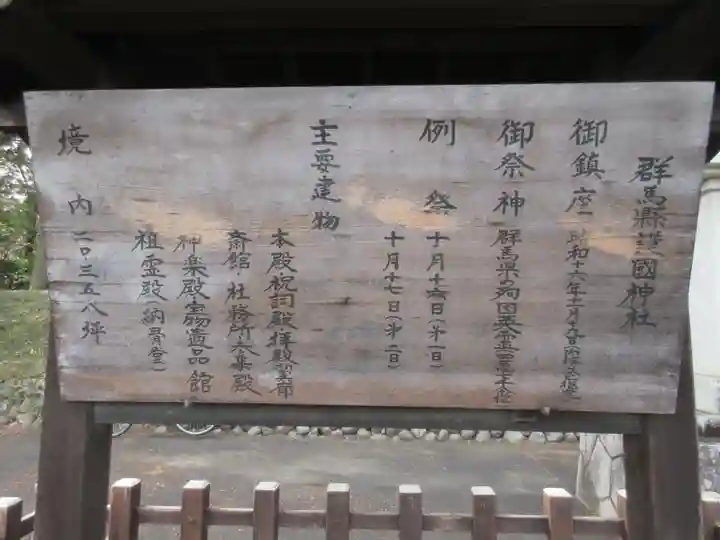 群馬縣護國神社
御鎮座 昭和十六年十一月十九日(
御祭神 群馬県の殉国英霊(
例祭 十月十六日(第一日)
十月十七日(第二日)
主要建物
本殿祝詞殿拝殿翼廊
斎館・社務所・参集殿
神楽殿・宝物遺品館
祖霊殿(納骨堂)
境内 二〇三五八坪